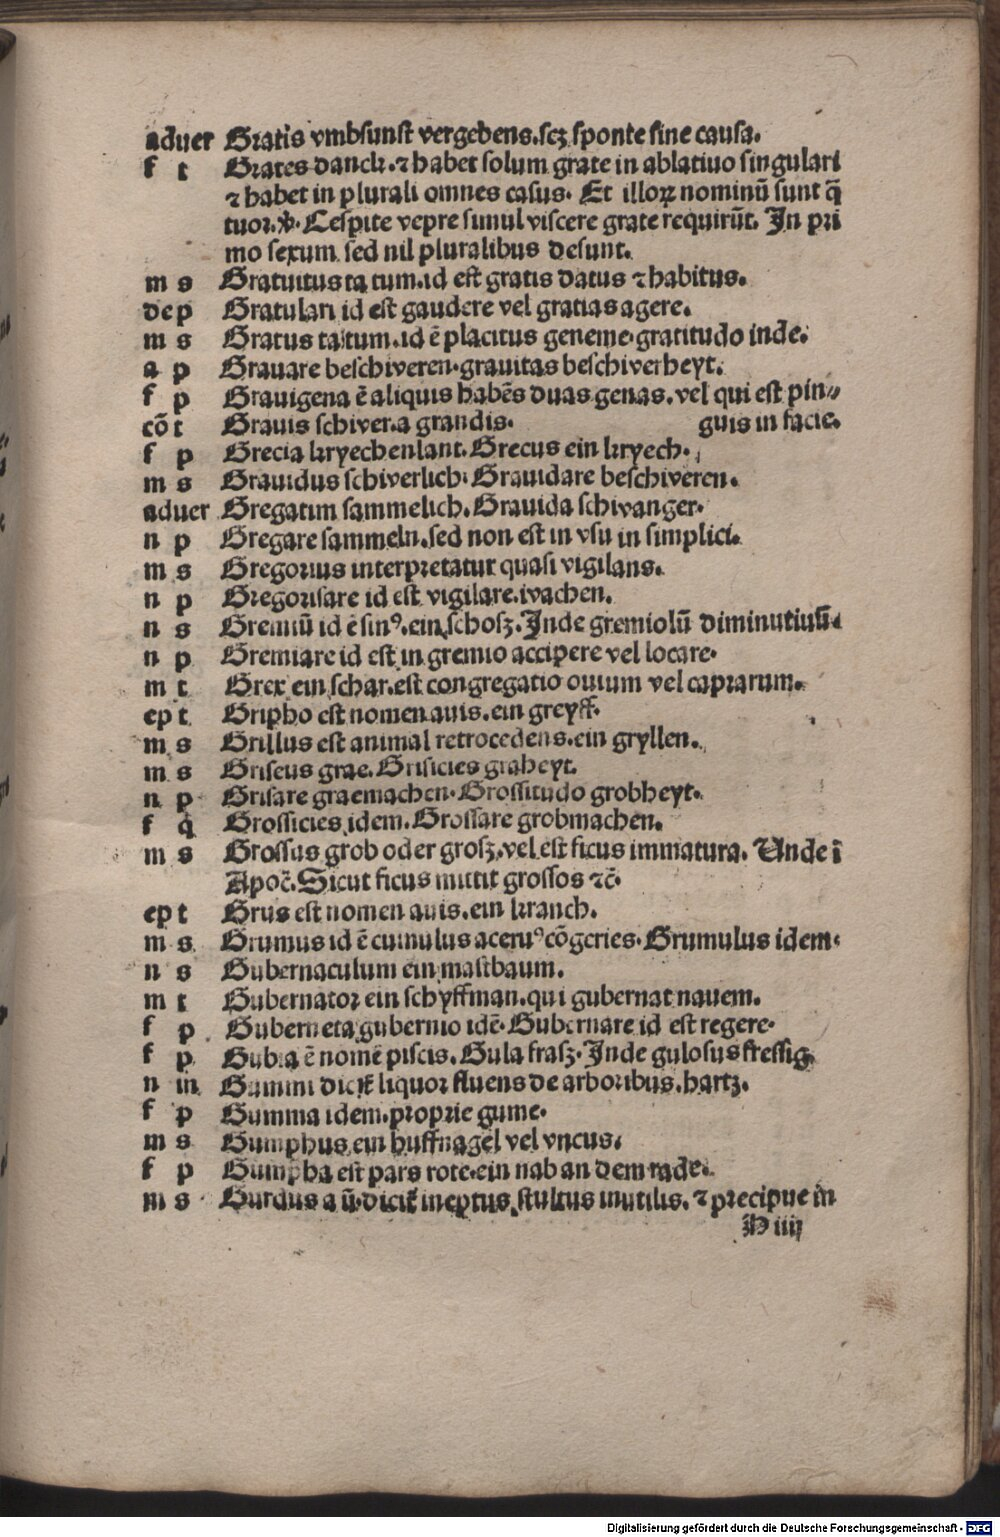 aduer Gratis vmbsunst vergebens.scz sponte sine causa.
f t Grates danck.⁊ habet solum grate in ablatiuo singulari
⁊ habet in plurali omnes casus. Et illoꝝ nominū sunt q̄
tuor.ꝟ. Cespite vepre simul viscere grate requirūt. In pri
mo sexum sed nil pluralibus desunt.
m s Gratuitus ta tum.id est gratis datus ⁊ habitus.
dep Gratulari id est gaudere vel gratias agere.
m s Gratus ta tum.id ē placitus geneme.gratitudo inde.
a p Grauare beschweren.grauitas beschwerheyt.
f p Grauigena ē aliquis habēs duas genas.vel qui est pin⸗
cō t Grauis schwer.a grandis. guis in facie.
f p Grecia kryechenlant.Grecus ein kryech.
m s Grauidus schwerlich.Grauidare beschweren.
aduer Gregatim sammelich.Grauida schwanger.
n p Gregare sammeln.sed non est in vsu in simplici.
m s Gregorius interpretatur quasi vigilans.
n p Gregorisare id est vigilare.wachen.
n s Gremiū id ē sinꝰ.ein schosz.Inde gremiolū diminutiuū.
n p Gremiare id est in gremio accipere vel locare.
m t Grex ein schar.est congregatio ouium vel caprarum.
ep t Gripho est nomen auis.ein greyff.
m s Grillus est animal retrocedens.ein gryllen.
m s Griseus grae.Grisicies graheyt.
n p Grisare graemachen.Grossitudo grobheyt.
f q̄ Grossicies idem.Grossare grobmachen.
m s Grossus grob oder grosz.vel est ficus immatura. Unde ī
Apoc̄.Sicut ficus mittit grossos ⁊c̄.
ep t Grus est nomen auis.ein kranch.
m s Grumus id ē cumulus aceruꝰ cōgeries.Grumulus idem.
n s Gubernaculum ein mastbaum.
m t Gubernator ein schyffman.qui gubernat nauem.
f p Guberneta gubernio idē.Gubernare id est regere.
f p Gubia ē nomē piscis.Gula frasz.Inde gulosus fressig.
n in Gummi dicit̄ liquor fluens de arboribus.hartz.
f p Gumma idem.proprie gume.
m s Gumphus ein huffnagel vel vncus.
f p Gumpha est pars rote.ein nab an dem rade.
m s Gurdus a ū.dicit̄ ineptus stultus inutilis.⁊ precipue in
H iiij
Digitalisierung gefördert durch die Deutsche Forschungsgemeinschaft - DFG